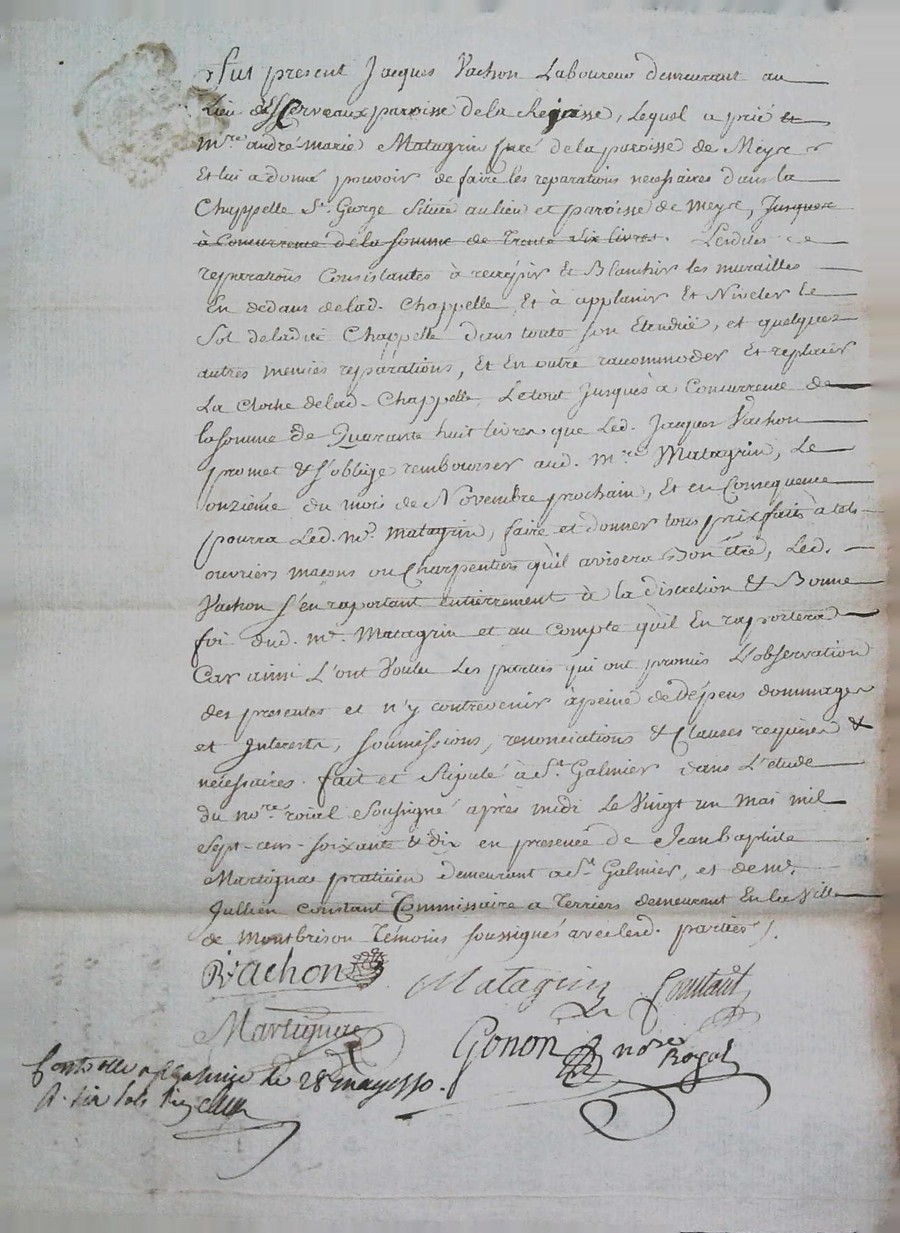 Fut present Jacques Vachon Laboureur demeurant au
Lieu paroisse de la , Lequel a prié et
mre andré-marie Matagrin Curé de la paroisse de Meyre
Et lui a donné pouvoir de faire les reparations nécessaires dans la
Chappelle St. George Située au lieu et paroisse de meyre, Jusques
à Concurrence de la somme de Trente Six livres. Lesdites
reparations Consistantes à recrépir Et Blanchir les murailles
En dedans delad. Chappelle, Et à applanir Et Niveler Le
Sol deladite Chappelle dans toute son Etendüe, et quelques
autres menües réparations, Et En outre racommoder Et replacer
La Cloche delad. Chappelle, Letout Jusqu'à Concurrence de
la somme de Quarante huit livres que Led. Jacques Vachon
promet & s'oblige rembourser aud. mre. Matagrin, Le
onzième du mois de Novembre prochain, Et en Consequence
pourra Led. mre. Matagrin, faire et donner tous prixfaits à tels
ouvriers maçons ou Charpentiers qu'il avisera Bon être, Led.
Vachon s'en raportant entièrement à la discretion & Bonne
foi dud. mre. Matagrin et au Compte qu'il En raportera
Car ainsi L'ont Voulu Les parties qui ont promis L'observation
des presentes et n'y contrevenir à peine de Dépens dommages
et Interests, soumissions, renonciations & Clauses requises &
nécessaires. fait et Stipulé à St. Galmier dans L'etude
du nore. roial soussigné après midi Le Vingt un Mai mil
Sept-cens-soixante & dix en presence de Jean baptiste
Martignac praticien demeurant a St. Galmier, et de mr.
Jullien Constant Commissaire a Terriers demeurant En la Ville
de Montbrison Témoins soussignés avec lesd. parties).
Vachon
Matagrin Constant
Gonon nore
Royal
le 28 may 1770.